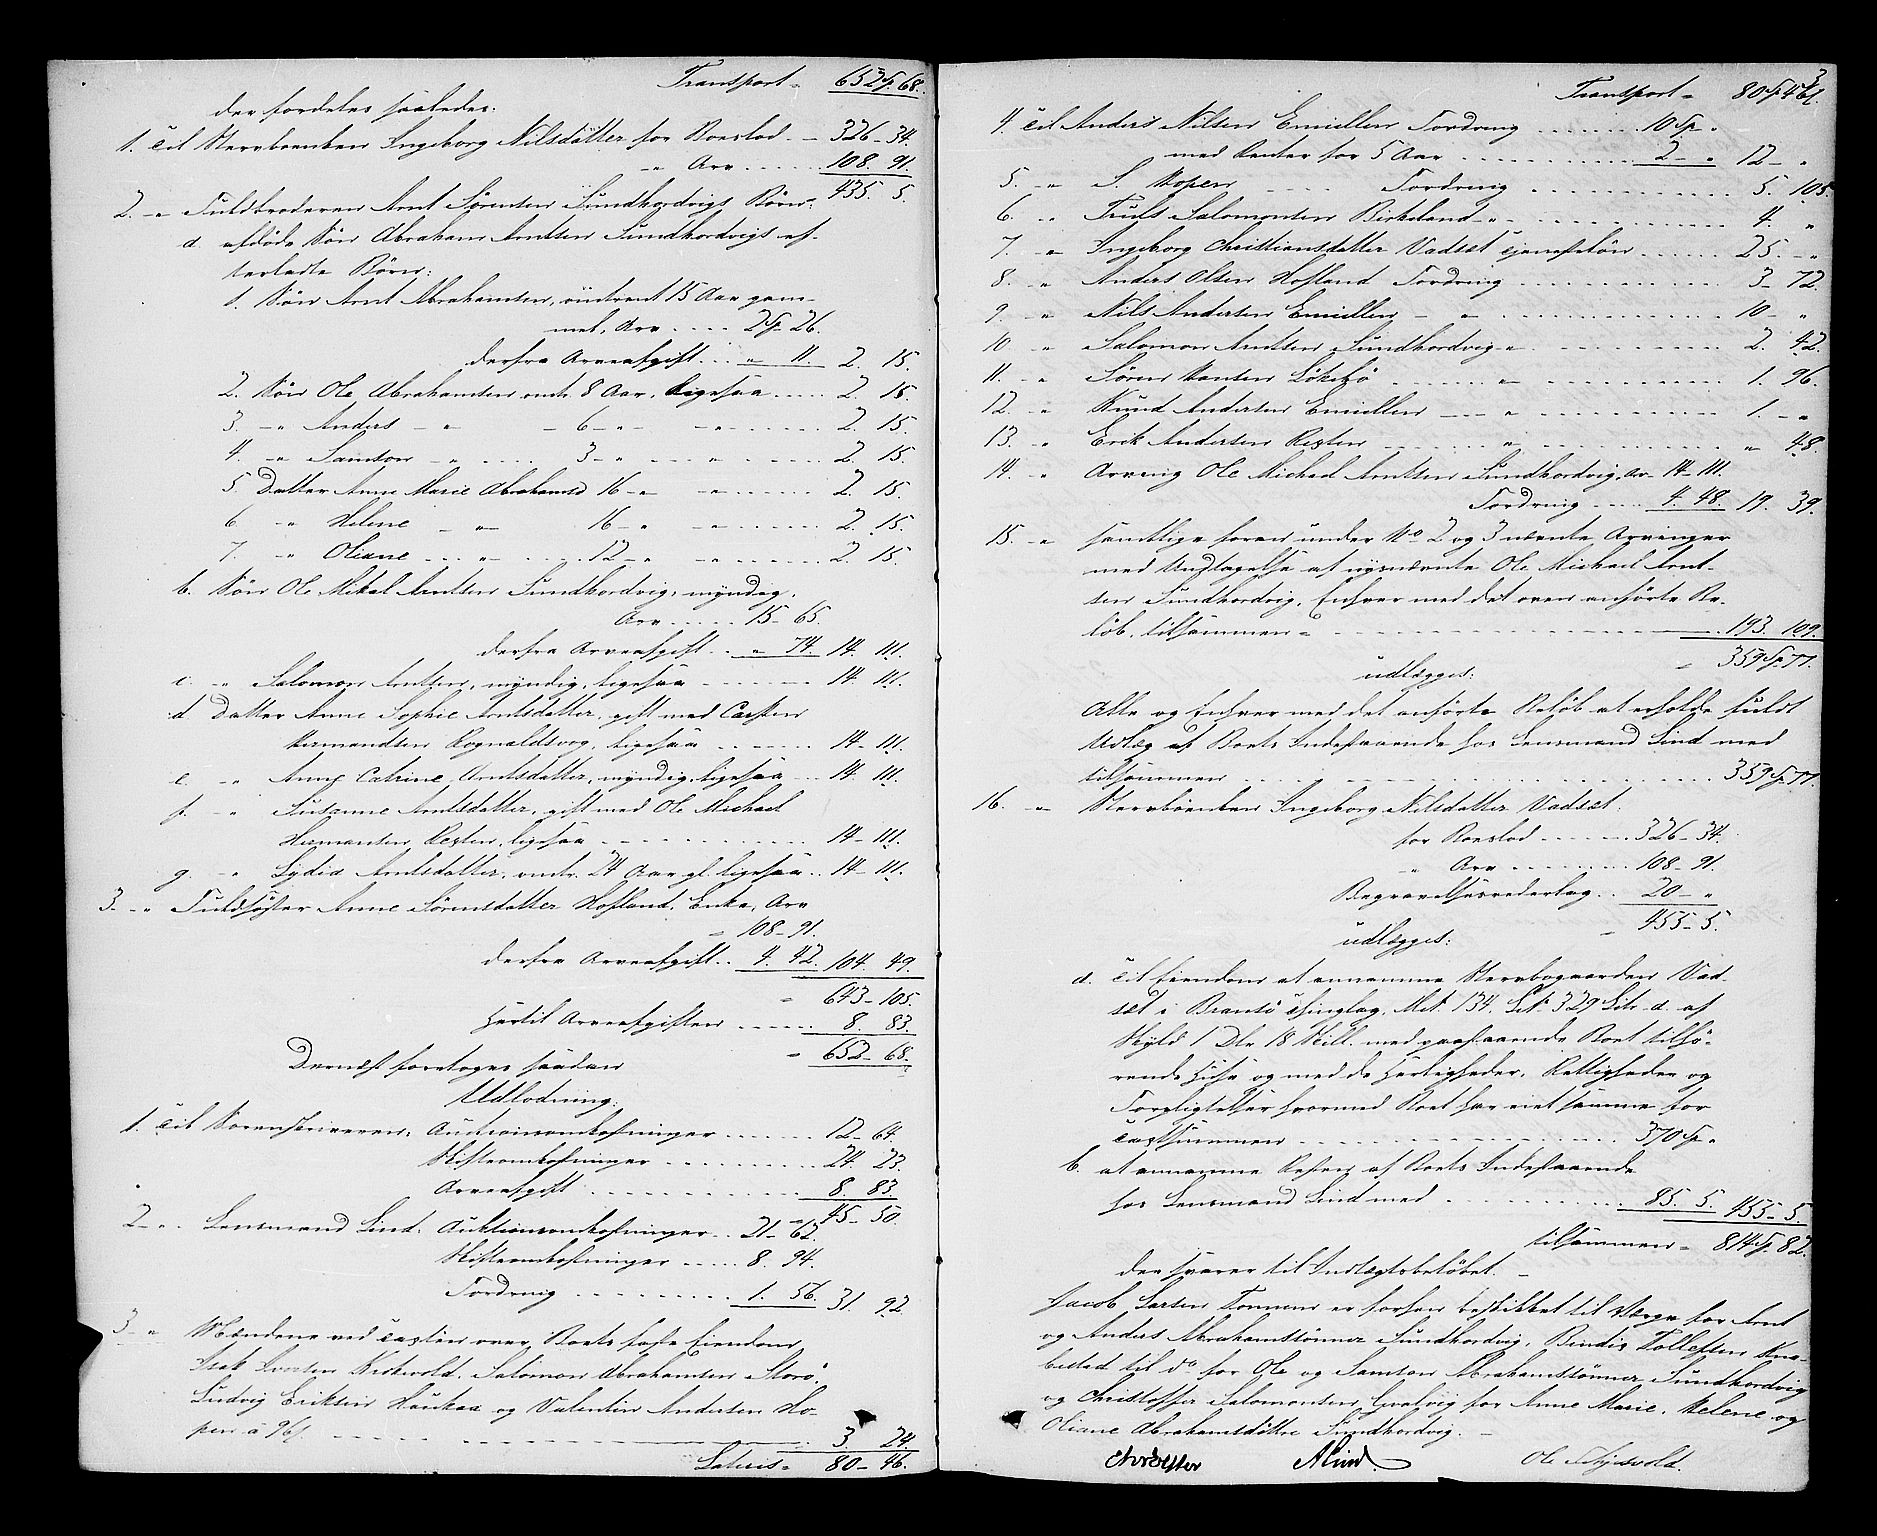 Transport „ 652 Sp. 68.
der fordeles saaledes:
1. Til Stervboenken Ingeborg Nilsdatter for Boeslod - 326 - 34.
„ Arv 108 91.
435. 5.
2. „ Fuldbroderen Arnt Sørensen Sundhordvigs Børn:
a. afdøde Søn Abraham Arntsen Sundhordvigs ef-
terladte Børn:
1. Søn Arnt Abrahamsen, omtrent 15 Aar gam-
mel, Arv 2 Sp 26.
derfra Arveafgift „ 11. 2. 15.
2. Søn Ole Abrahamsen omtr. 8 Aar, ligesaa 2. 15.
3. „ Anders „ - 6 - „ „ 2. 15.
4. „ Samson „ 3 - „ „ 2. 15.
5. Datter Anne Marie Abrahamsd 16 - „ „ 2. 15.
6. „ Helene „ 16 - „ „ 2. 15.
7. „ Oliane „ 12 - „ „ 2. 15.
b. Søn Ole Mikal Arntsen Sundhordvig, myndig,
Arv 15 - 65.
derfra Arveafgift „ 74. 14. 111.
c. „ Salomon Arntsen, myndig, ligesaa 14. 111.
d Datter Anne Sophie Arntsdatter, gift med Carsten
Hermandsen Rognaldsvog, ligesaa 14 - 111.
e. „ Anne Catrine Arntsdatter, myndig, ligesaa 14. 111.
f. „ Susanne Arntsdatter, gift med Ole Michael
Hermansen Resten, ligesaa 14 - 111.
g. „ Lydia Arntsdatter, omtr. 24 Aar gl. ligesaa 14 - 111.
3. „ Fuldsøster Anne Sørensdatter Hofland, Enke, Arv
„ 108 - 91.
derfra Arveafgift 4. 42. 104. 49.
„ 643 - 105.
Hertil Arveafgiften 8. 83.
„ 652 - 68.
Dernæst foretoges saadan
Udlodning:
1. Til Sorenskriveren: Auctionsomkostninger 12 - 64.
Skifteomkostninger 24. 23.
Arveafgift 8. 83.
45 - 50.
2 „ Lensmand Lind: Auktionsomkostninger 21 - 62.
Skifteomkostninger 8. 94.
Fordring 1. 56. 31. 92.
3 „ Mændene ved Taxten over Boets faste Eiendom
Isak Iversen, Salomon Abrahamsen Storø,
Ludvig Eriksen Haukaa og Valentin Andersen Ho-
pen à 96 s. 3. 24.
Lateris „ 80 - 46.
3
Transport „ 80 Sp 46 s.
4. Til Anders Nilsen Emiellen Fordring 10 Sp „
med Renter for 5 Aar 2 - „ 12 - „
5. „ S. Hopen Fordring 5. 105.
6. „ Truls Salomonsen Birkeland „ 4. „
7. „ Ingeborg Christiansdatter Vadset Tjenesteløn 25. „
8. „ Anders Olsen Hofland Fordring 3 - 72.
9. „ Nils Andersen Emiellen „ 10 - „
10 „ Salomon Arntsen Sundhordvig „ 2. 42.
11. „ Søren Hansen „ 1. 96.
12. „ Knud Andersen Emiellen „ 1. „
13. „ Erik Andersen Resten „ „ 48.
14. „ Arving Ole Michael Arntsen Sundhordvig, Arv 14 - 111.
Fordring 4. 48. 19. 39.
15. „ samtlige foran under No 2 og 3 nævnte Arvinger
med Undtagelse af nysnævnte Ole Michael Arnt-
sen Sundhordvig, Enhver med det oven anførte Be-
løb, tilsammen „ 193. 109.
„ 359 Sp. 77.
udlægges:
Alle og Enhver med det anførte Beløb at erholde fuldt
Udlæg af Boets Indestaaende hos Lensmand Lind med
tilsammen 359 Sp. 77.
16. „ Stervboenken Ingeborg Nilsdatter Vadset.
for Boeslod 326 - 34.
„ Arv 108 - 91.
Begravelsesvederlag 20 - „
„ 455 - 5.
udlægges:
a. Til Eiendom at annamme Stervbogaarden Vad-
set i Bransø Thinglag, Mat. 134. Lit: 329 Litr. a. af
Skyld 1 Dlr 18 Skill. med paastaaende Boet tilhø-
rende Huse og med de Herligheder, Rettigheder og
Forpligtelser hvormed Boet har eiet samme for
Taxtsummen 370 Sp. „
b. at annamme Resten af Boets Indestaaende
hos Lensmand Lind med 85. 5. 455 - 5.
tilsammen „ 814 Sp. 82.
der svarer til Indtægtsbeløbet.
Jacob Larsen Tonnen er forhen beskikket til Værge for Arnt
og Anders Abrahamsønner Sundhordvig, Bendix Tollefsen Kna-
bstad til do for Ole og Samson Abrahamsønner Sundhordvig
og Christoffer Salomonsen for Anne Marie, Helene og
Oliane Abrahamsdøttre Sundhordvig.
ALind. Ole